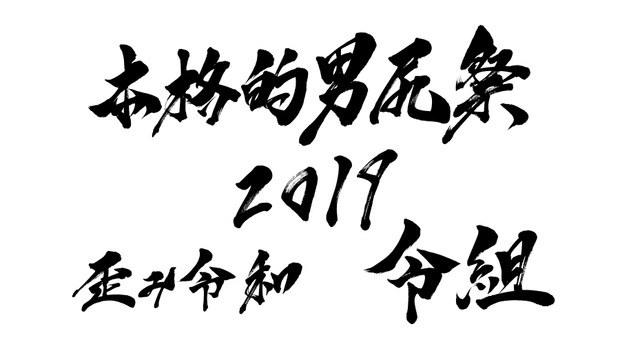 本格的男尻祭
2019
歪み令和 令組